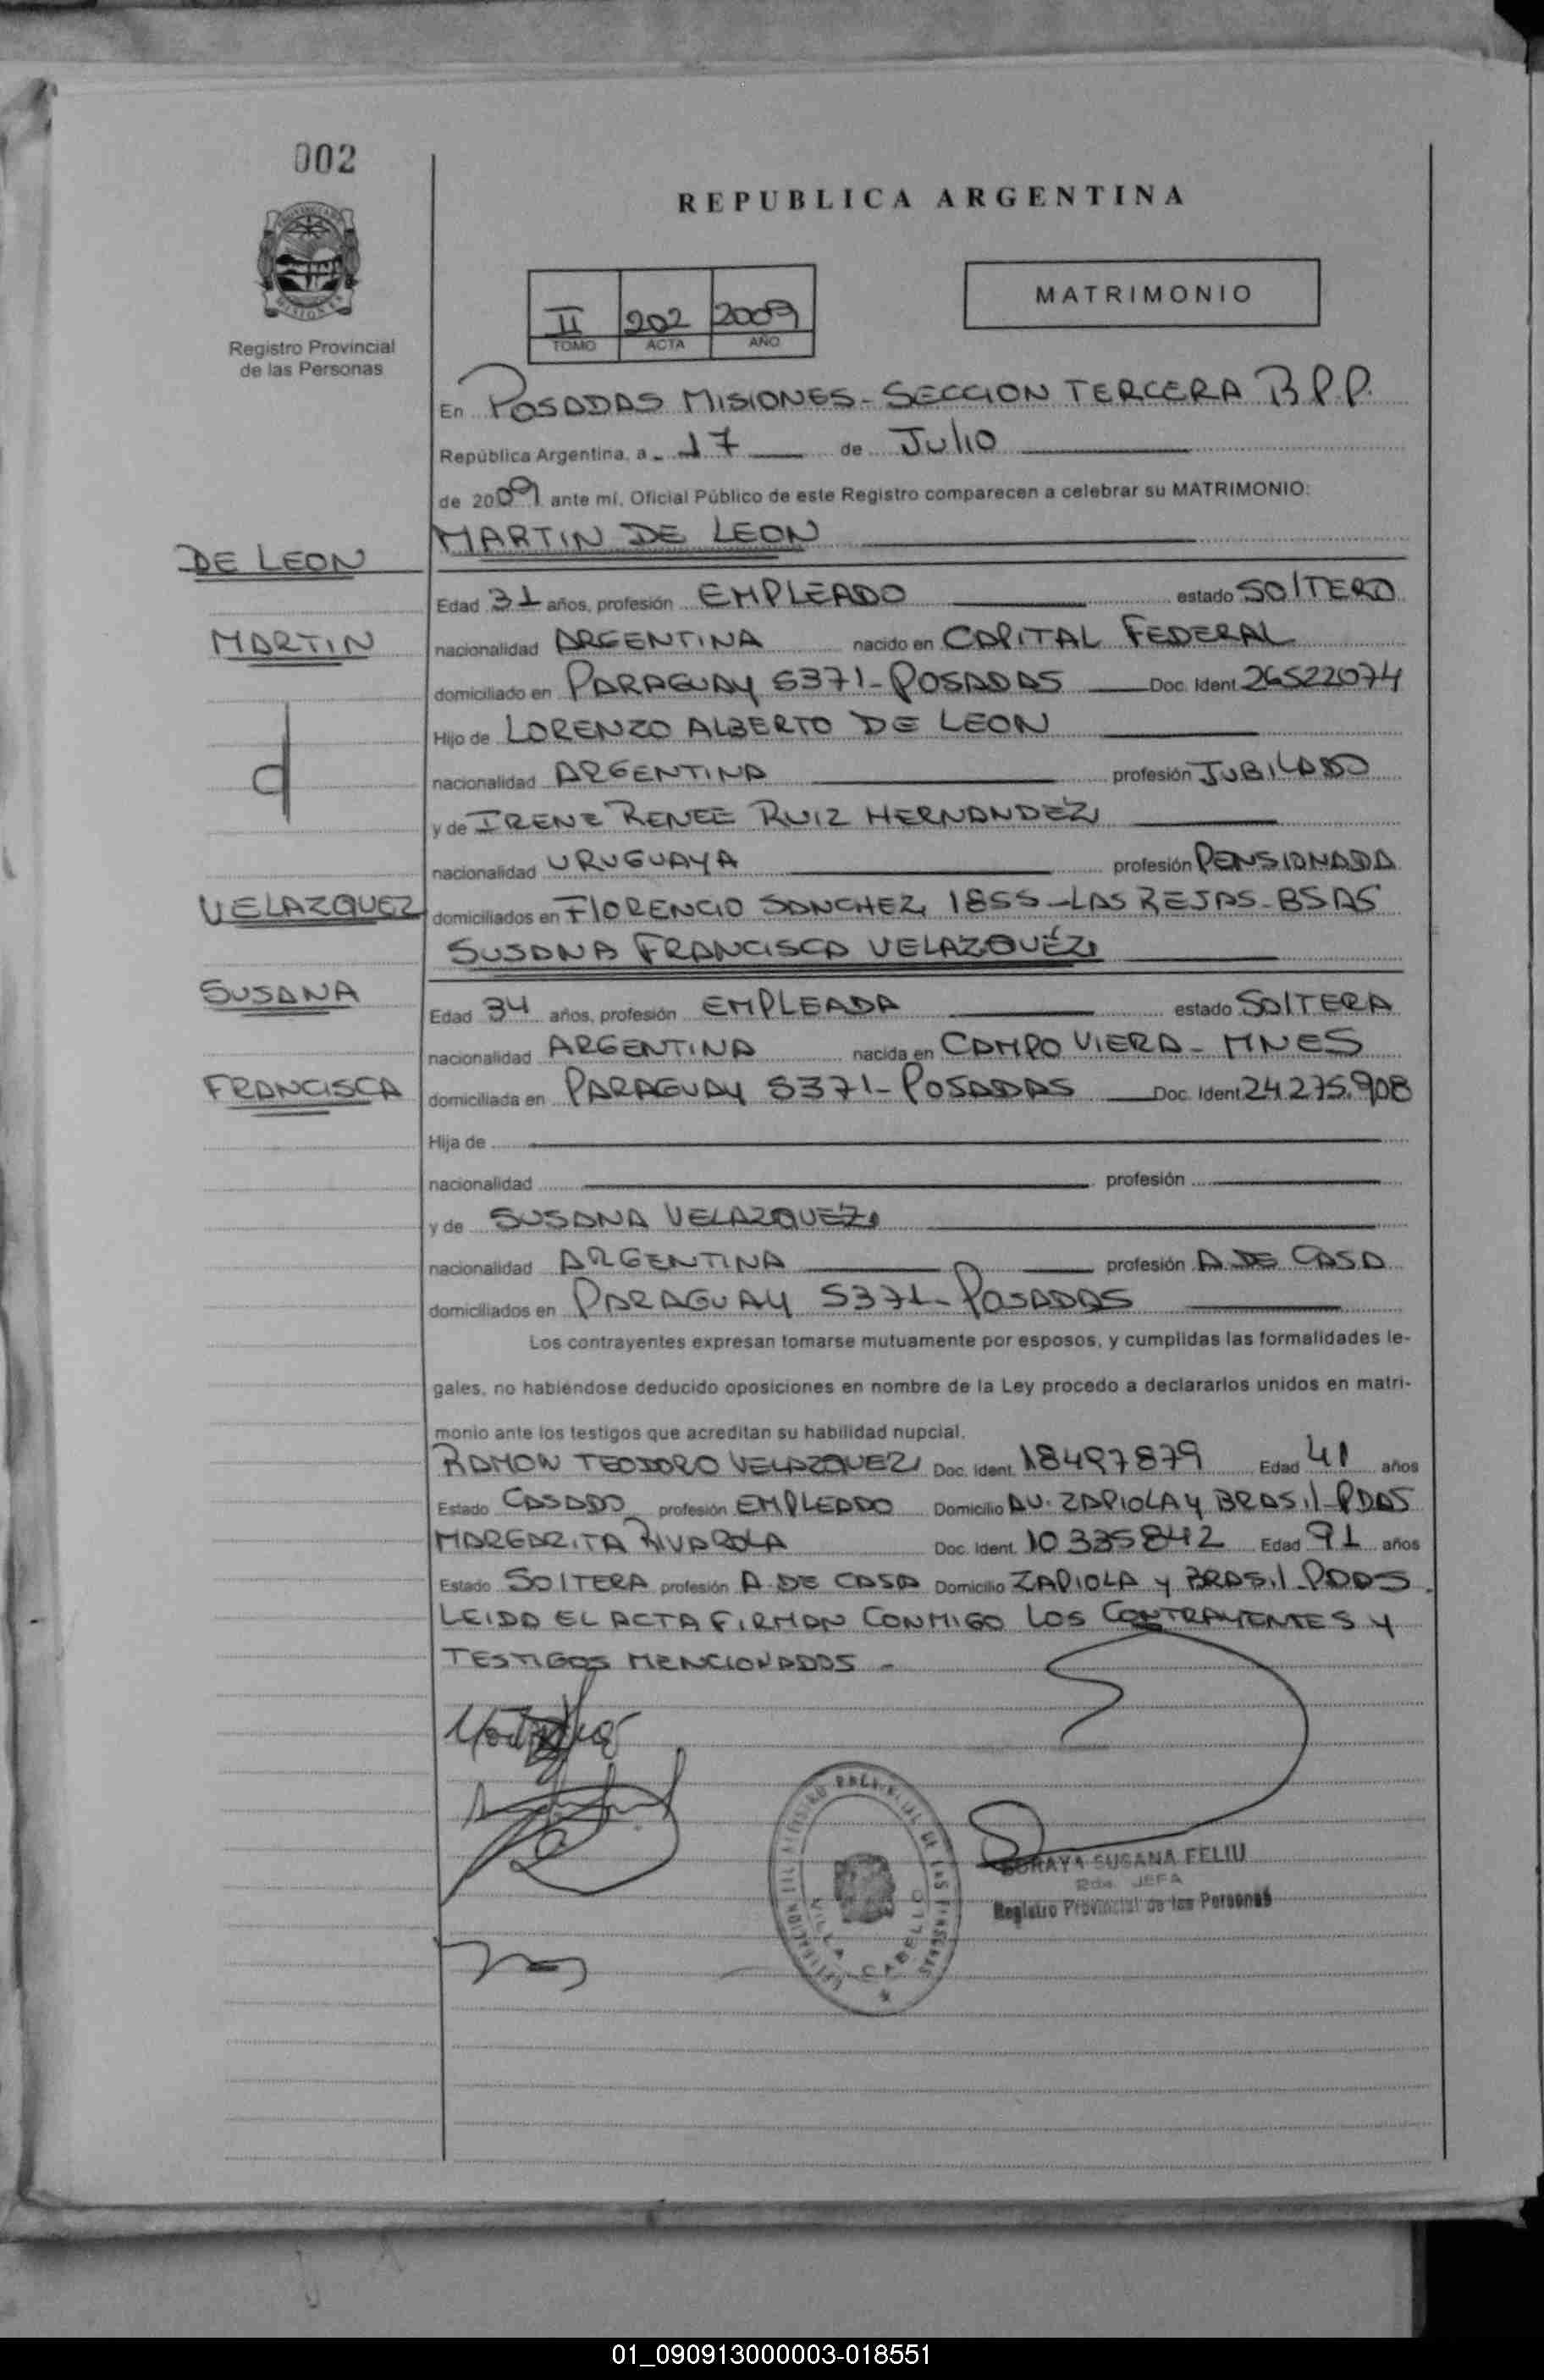 002
REPUBLICA ARGENTINA
MATRIMONIO
II 202 2009
TOMO ACTA AÑO
Registro Provincial
de las Personas
En POSADAS MISIONES - SECCION TERCERA B P.P.
República Argentina, a 17 de Julio
de 2009 ante mí, Oficial Público de este Registro comparecen a celebrar su MATRIMONIO:
MARTIN DE LEON
DE LEON
Edad 31 años, profesión EMPLEADO estado SOLTERO
MARTIN
nacionalidad ARGENTINA nacido en CAPITAL FEDERAL
domiciliado en PARAGUAY 5371 - POSADAS Doc. Ident. 26522074
Hijo de LORENZO ALBERTO DE LEON
nacionalidad ARGENTINA profesión JUBILADO
d
y de IRENE RENEE RUIZ HERNANDEZ
nacionalidad URUGUAYA profesión PENSIONADA
VELAZQUEZ
domiciliados en FLORENCIO SANCHEZ 1855 - LAS REJAS - BSAS
SUSANA FRANCISCA VELAZQUÉZ
SUSANA
Edad 34 años, profesión EMPLEADA estado SOLTERA
nacionalidad ARGENTINA nacida en CAMPO VIERA - MNES
FRANCISCA
domiciliada en PARAGUAY 5371 - POSADAS Doc. Ident. 24.275.908
Hija de
nacionalidad profesión
y de SUSANA VELAZQUEZ
nacionalidad ARGENTINA profesión A. DE CASA
domiciliados en PARAGUAY 5371 - POSADAS
Los contrayentes expresan tomarse mutuamente por esposos, y cumplidas las formalidades le-
gales, no habiéndose deducido oposiciones en nombre de la Ley procedo a declararlos unidos en matri-
monio ante los testigos que acreditan su habilidad nupcial.
RAMON TEODORO VELAZQUEZ Doc. Ident. 18497879 Edad 41 años
Estado CASADO profesión EMPLEADO Domicilio AV. ZAPIOLA Y BRASIL - PDAS
MARGARITA RIVAROLA Doc. Ident. 10335842 Edad 91 años
Estado SOLTERA profesión A. DE CASA Domicilio ZAPIOLA Y BRASIL - PDAS
LEIDA EL ACTA FIRMAN CONMIGO LOS CONTRAYENTES Y
TESTIGOS MENCIONADOS -
SORAYA SUSANA FELIU
JEFA
Registro Provincial de las Personas
VILLA CABELLO
01_090913000003-018551